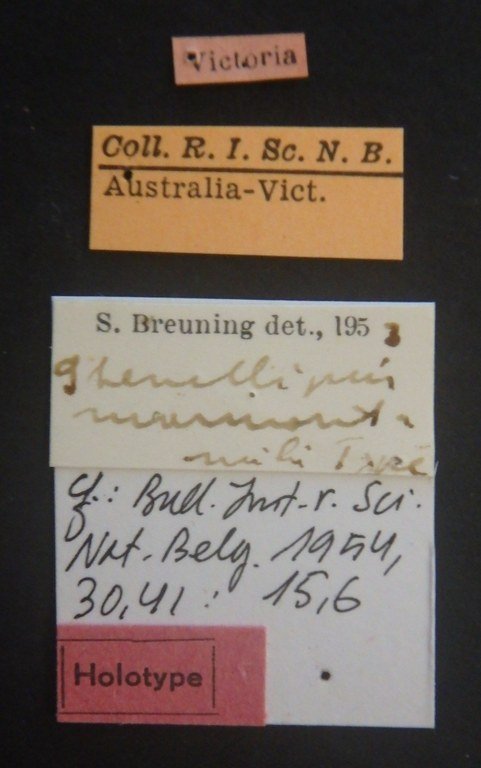 Victoria
Coll. R. I. Sc. N. B.
Australia-Vict.
S. Breuning det., 1953
mihi Type
cf.: Bull. Inst. r. Sci.
Nat. Belg. 1954,
30,41: 15,6
Holotype